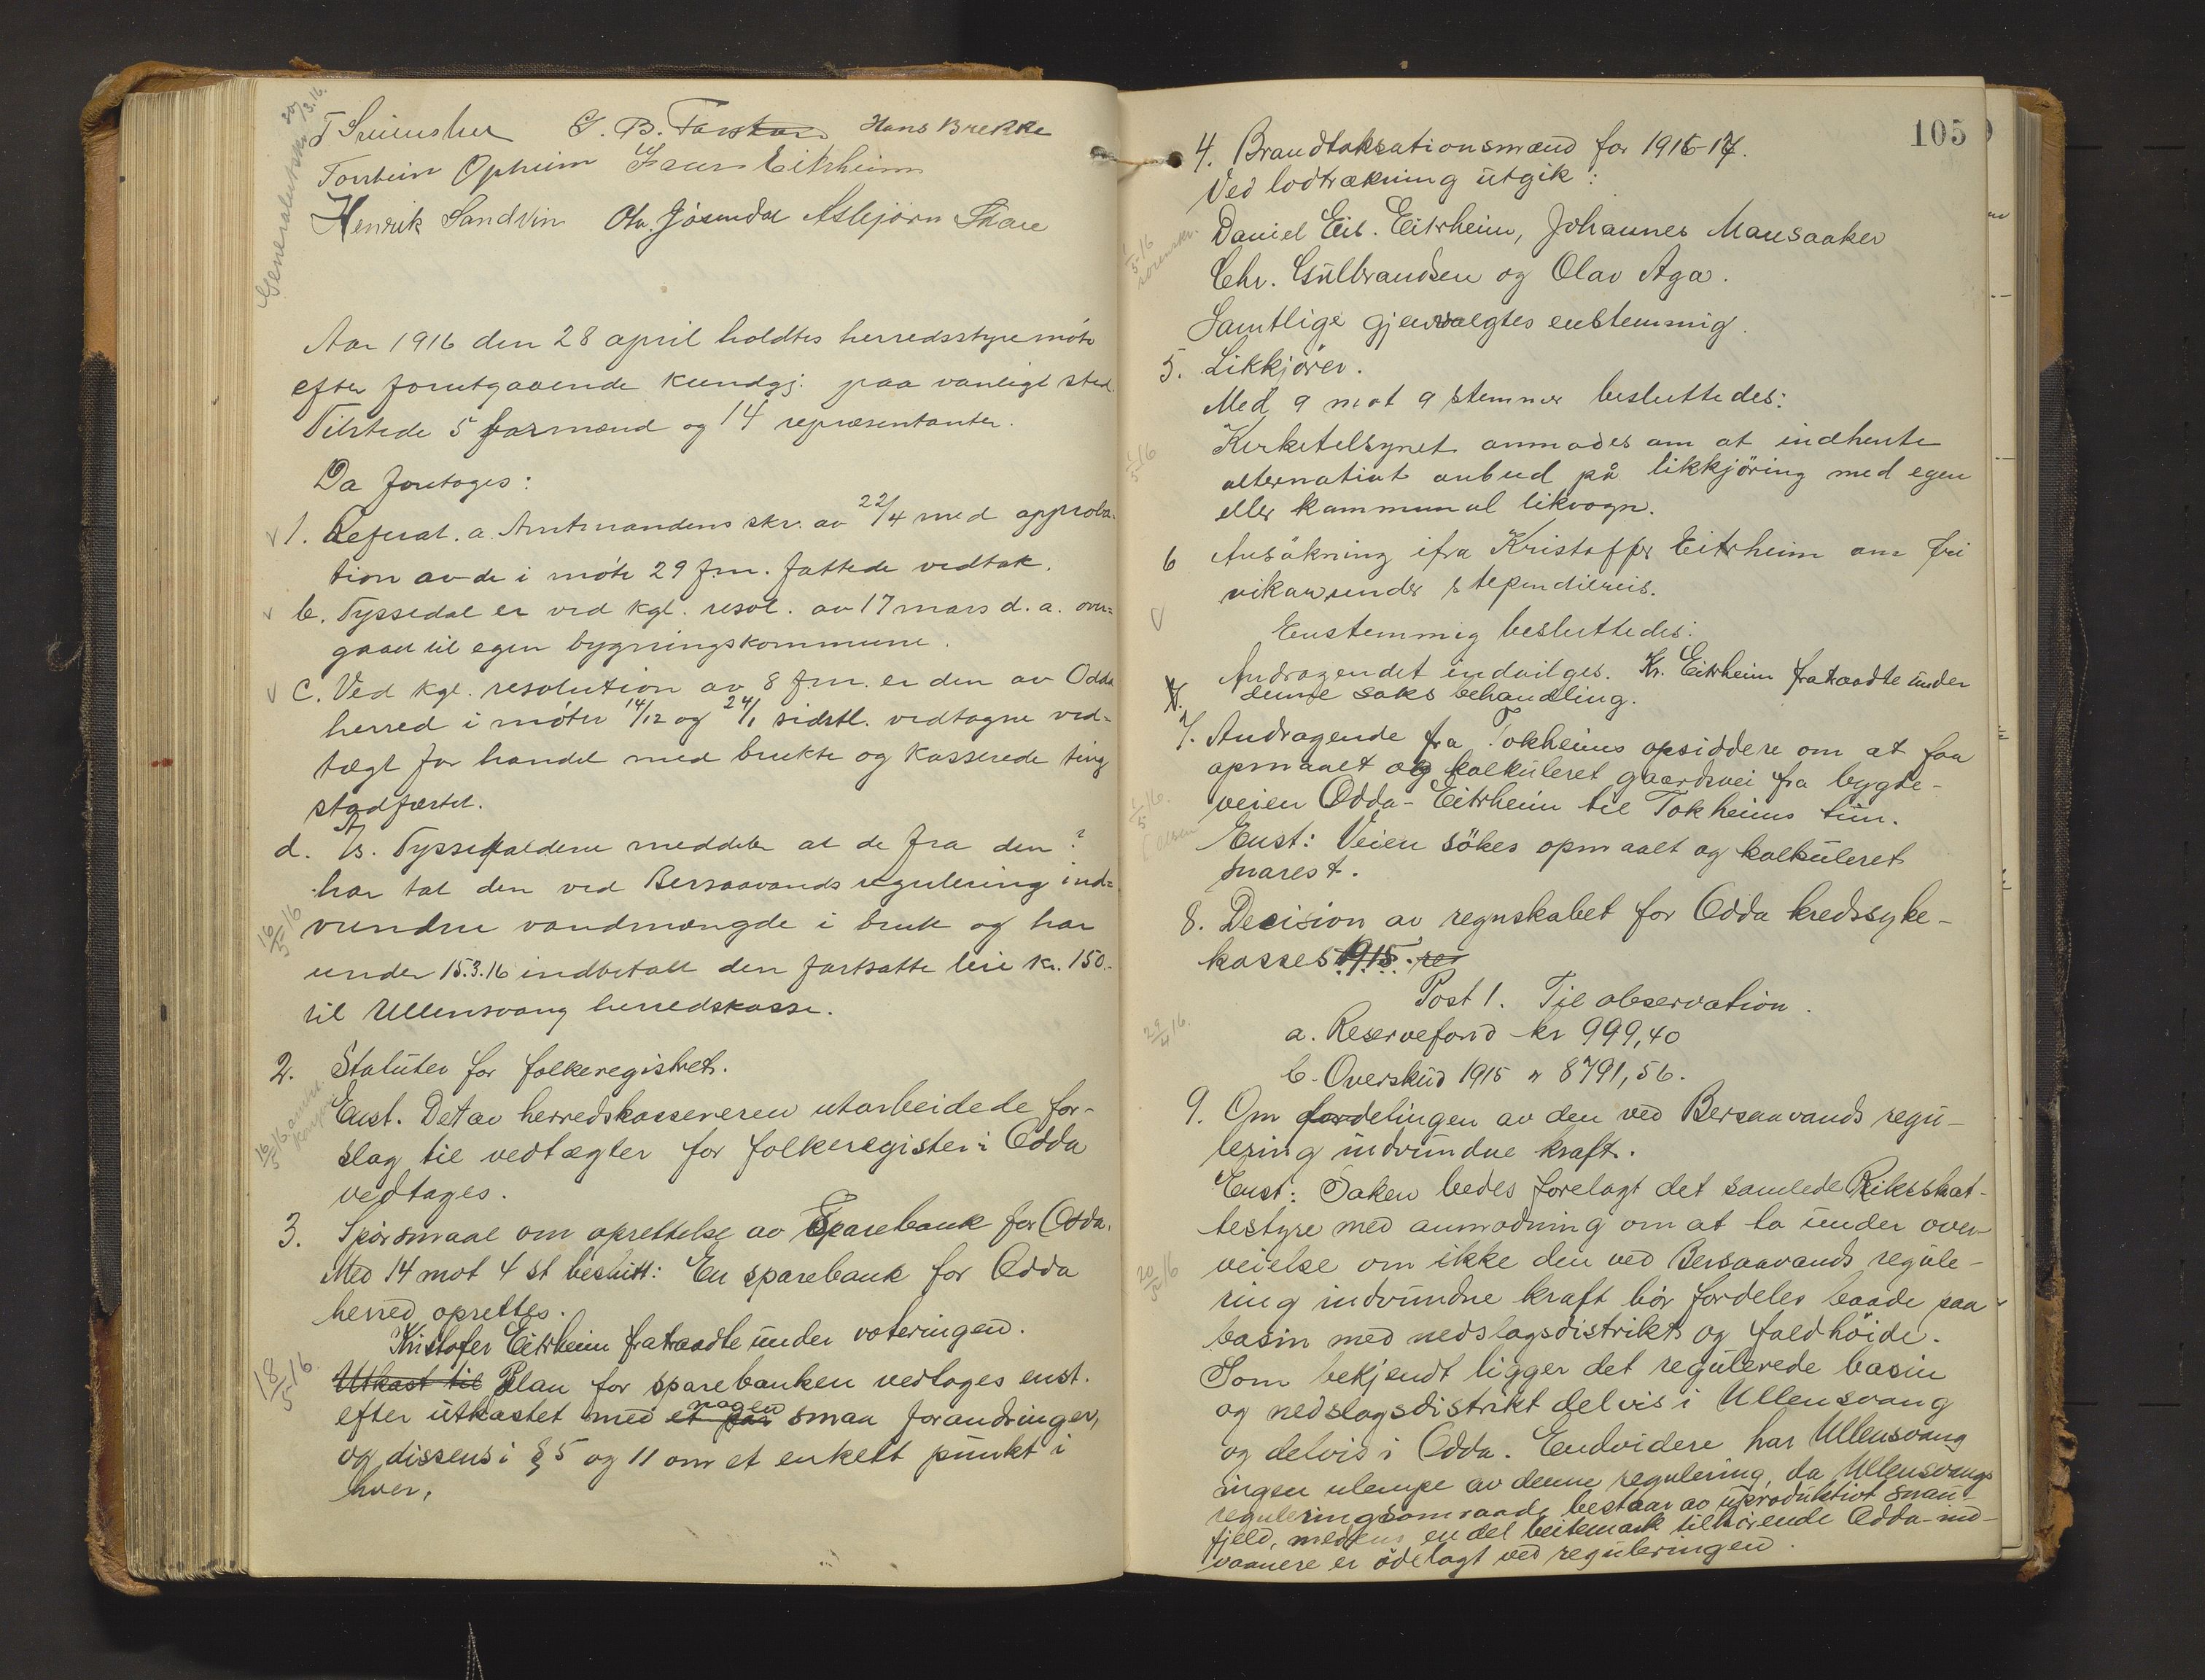 Hans Brekke
Torstein Opheim Eitrheim
Henrik Sandvin Ola Jösendal Asbjørn
Generalutskr.
Aar 1916 den 28 april holdtes herredsstyremöte
efter forutgaaende kundgj. paa vanligt sted.
Tilstede 5 formænd og 14 repræsentanter.
Da foretoges:
1. Referat. a. Amtmandens skr. av 22/4 med approba-
tion av de i möte 29 f.m. fattede vedtak.
b. Tyssedal er ved kgl. resol. av 17 mars d.a. over=
gaaet til egen bygningskommune.
c. Ved kgl. resolution av 8 f.m. er den av Odda
herred i möter 14/12 og 24/1 sidstl. vedtagne ved=
tægt for handel med brukte og kasserede ting
stadfæstet.
d. A/s. Tyssefaldene meddeler at de fra den ?
har tat den ved Bersaavands regulering ind=
vundne vandmængde i bruk og har
under 15.3.16 indbetalt den fastsatte leie kr. 150.-
til Ullensvang herredskasse.
16/5 16
2. Statuter for folkeregistret.
Enst. Det av herredskassereren utarbeidede for-
slag til vedtægter for folkeregister i Odda
vedtages.
16/5 16
3. Spörsmaal om oprettelse av Sparebank for Odda.
Med 14 mot 4 st beslutt: En sparebank for Odda
herred oprettes.
Kristofer Eitrheim fratraadte under voteringen.
18/5 16
Utkast til Plan for sparebanken vedtages enst.
efter utkastet med et par nogen smaa forandringer,
og dissens i § 5 og 11 om et enkelt punkt i
hver.
105
4. Brandtaksationsmænd for 1916-17.
Ved lodtrækning utgik:
Daniel Eil. Eitrheim, Johannes Mansaaker
Chr. Gulbrandsen og Olav Aga.
Samtlige gjenvalgtes enstemmig.
1/5 16
sorenskr.
5. Likkjörer.
Med 9 mot 9 stemmer besluttedes:
Kirketilsynet anmodes om at indhente
alternativt anbud på likkjöring med egen
eller kommunal likvogn.
1/5 16
6 Ansökning ifra Kristoffer Eitrheim om fri
vikar under stipendiereis.
Enstemmig besluttedes:
Andragendet indvilges. Kr. Eitrheim fratraadte under
denne saks behandling.
7. Andragende fra Tokheims opsiddere om at faa
opmaalt og kalkuleret gaardsvei fra bygde-
veien Odda-Eitrheim til Tokheims tun.
Enst: Veien sökes opmaalt og kalkuleret
snarest.
1/5 16.
8. Decision av regnskabet for Odda kredssyke-
kasses 1915.
Post 1. Til observation.
a. Reservefond kr 999,40
b. Overskud 1915 " 8791,56.
29/4 16.
9. Om fordelingen av den ved Bersaavands regu-
lering indvundne kraft.
Enst: Saken bedes forelagt det samlede Riksskat-
testyre med anmodning om at ta under over-
veielse om ikke den ved Bersaavands regule-
ring indvundne kraft bör fordeles baade paa
basin med nedslagsdistrikt og faldhöide.
Som bekjendt ligger det regulerede basin
og nedslagsdistrikt delvis i Ullensvang
og delvis i Odda. Endvidere har Ullensvang
ingen ulempe av denne regulering, da Ullensvangs
reguleringsomraade bestaar av uproduktivt snau-
fjeld, medens en del beitemark tilhörende Odda-ind-
vaanere er ödelagt ved reguleringen.
20/5 16